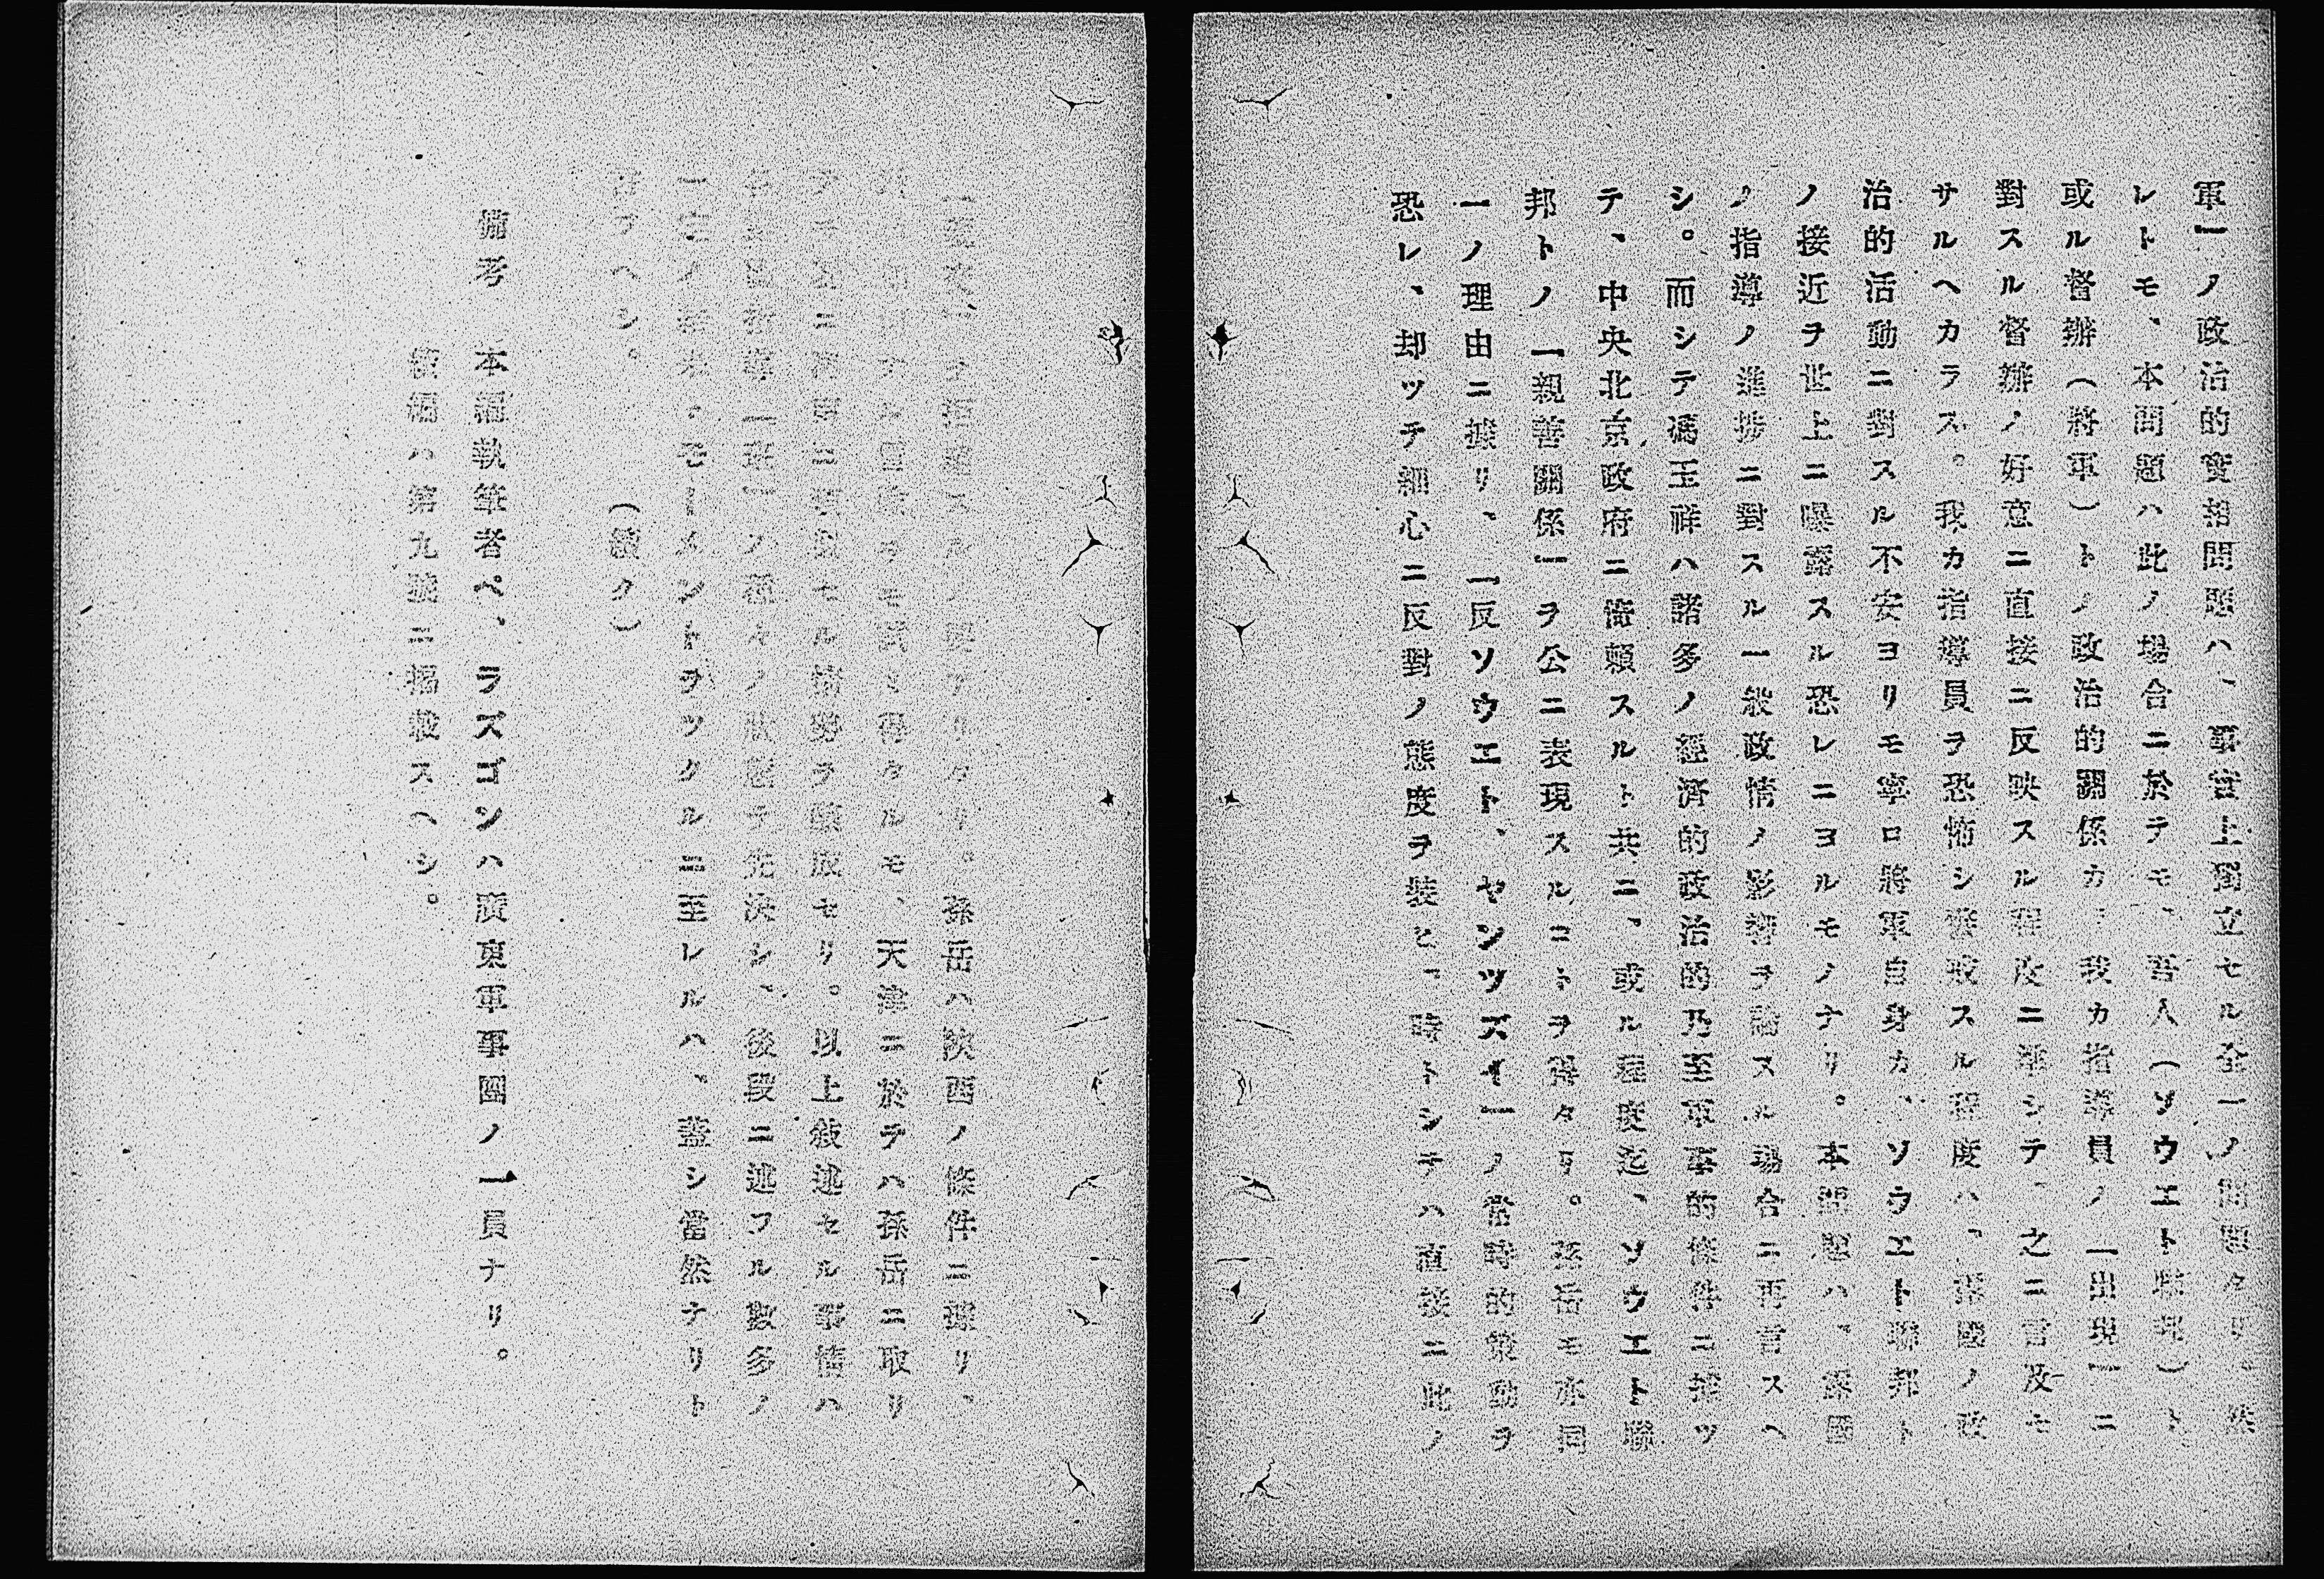 軍」ノ政治的實相問題ハ、事實上獨立セル全一ノ問題タリ。然
レトモ、本問題ハ此ノ場合ニ於テモ、吾人(ソウエト聯邦)ト
或ル督辦(將軍)トノ政治的關係カ、我カ指導員ノ「出現」ニ
對スル督辦ノ好意ニ直接ニ反映スル程度ニ準シテ、之ニ言及セ
サルヘカラス。我カ指導員ヲ恐怖シ警戒スル程度ハ、露國ノ政
治的活動ニ對スル不安ヨリモ寧ロ將軍自身カ、ソウエト聯邦ト
ノ接近ヲ世上ニ曝露スル恐レニヨルモノナリ。本問題ハ、露國
ノ指導ノ進捗ニ對スル一般政情ノ影響ヲ論スル場合ニ再言スヘ
シ。而シテ馮玉祥ハ諸多ノ經濟的政治的乃至軍事的條件ニ據ツ
テ、中央北京政府ニ倚賴スルト共ニ、或ル程度迄、ソウエト聯
邦トノ「親善關係」ヲ公ニ表現スルコトヲ得タリ。孫岳モ亦同
一ノ理由ニ據リ、「反ソウエト、ヤンツズイ」ノ常時的策動ヲ
恐レ、却ツテ細心ニ反對ノ態度ヲ裝ヒ、時トシテハ直接ニ此ノ
スルノ要アリタリ。孫岳ハ陝西ノ條件ニ據リ、
得タルモ、天津ニ於テハ孫岳ニ取リ
セル情勢ヲ釀成セリ。以上敍述セル事情ハ
ノ種々ノ狀態テ先決シ、後段ニ述フル數多ノ
モーメントヲツクルニ至レルハ、蓋シ當然ナリト
言フヘシ。 (續ク)
備考 本編執筆者ペ、ラズゴンハ廣東軍事團ノ一員ナリ。
續編ハ第九號ニ揭載スヘシ。